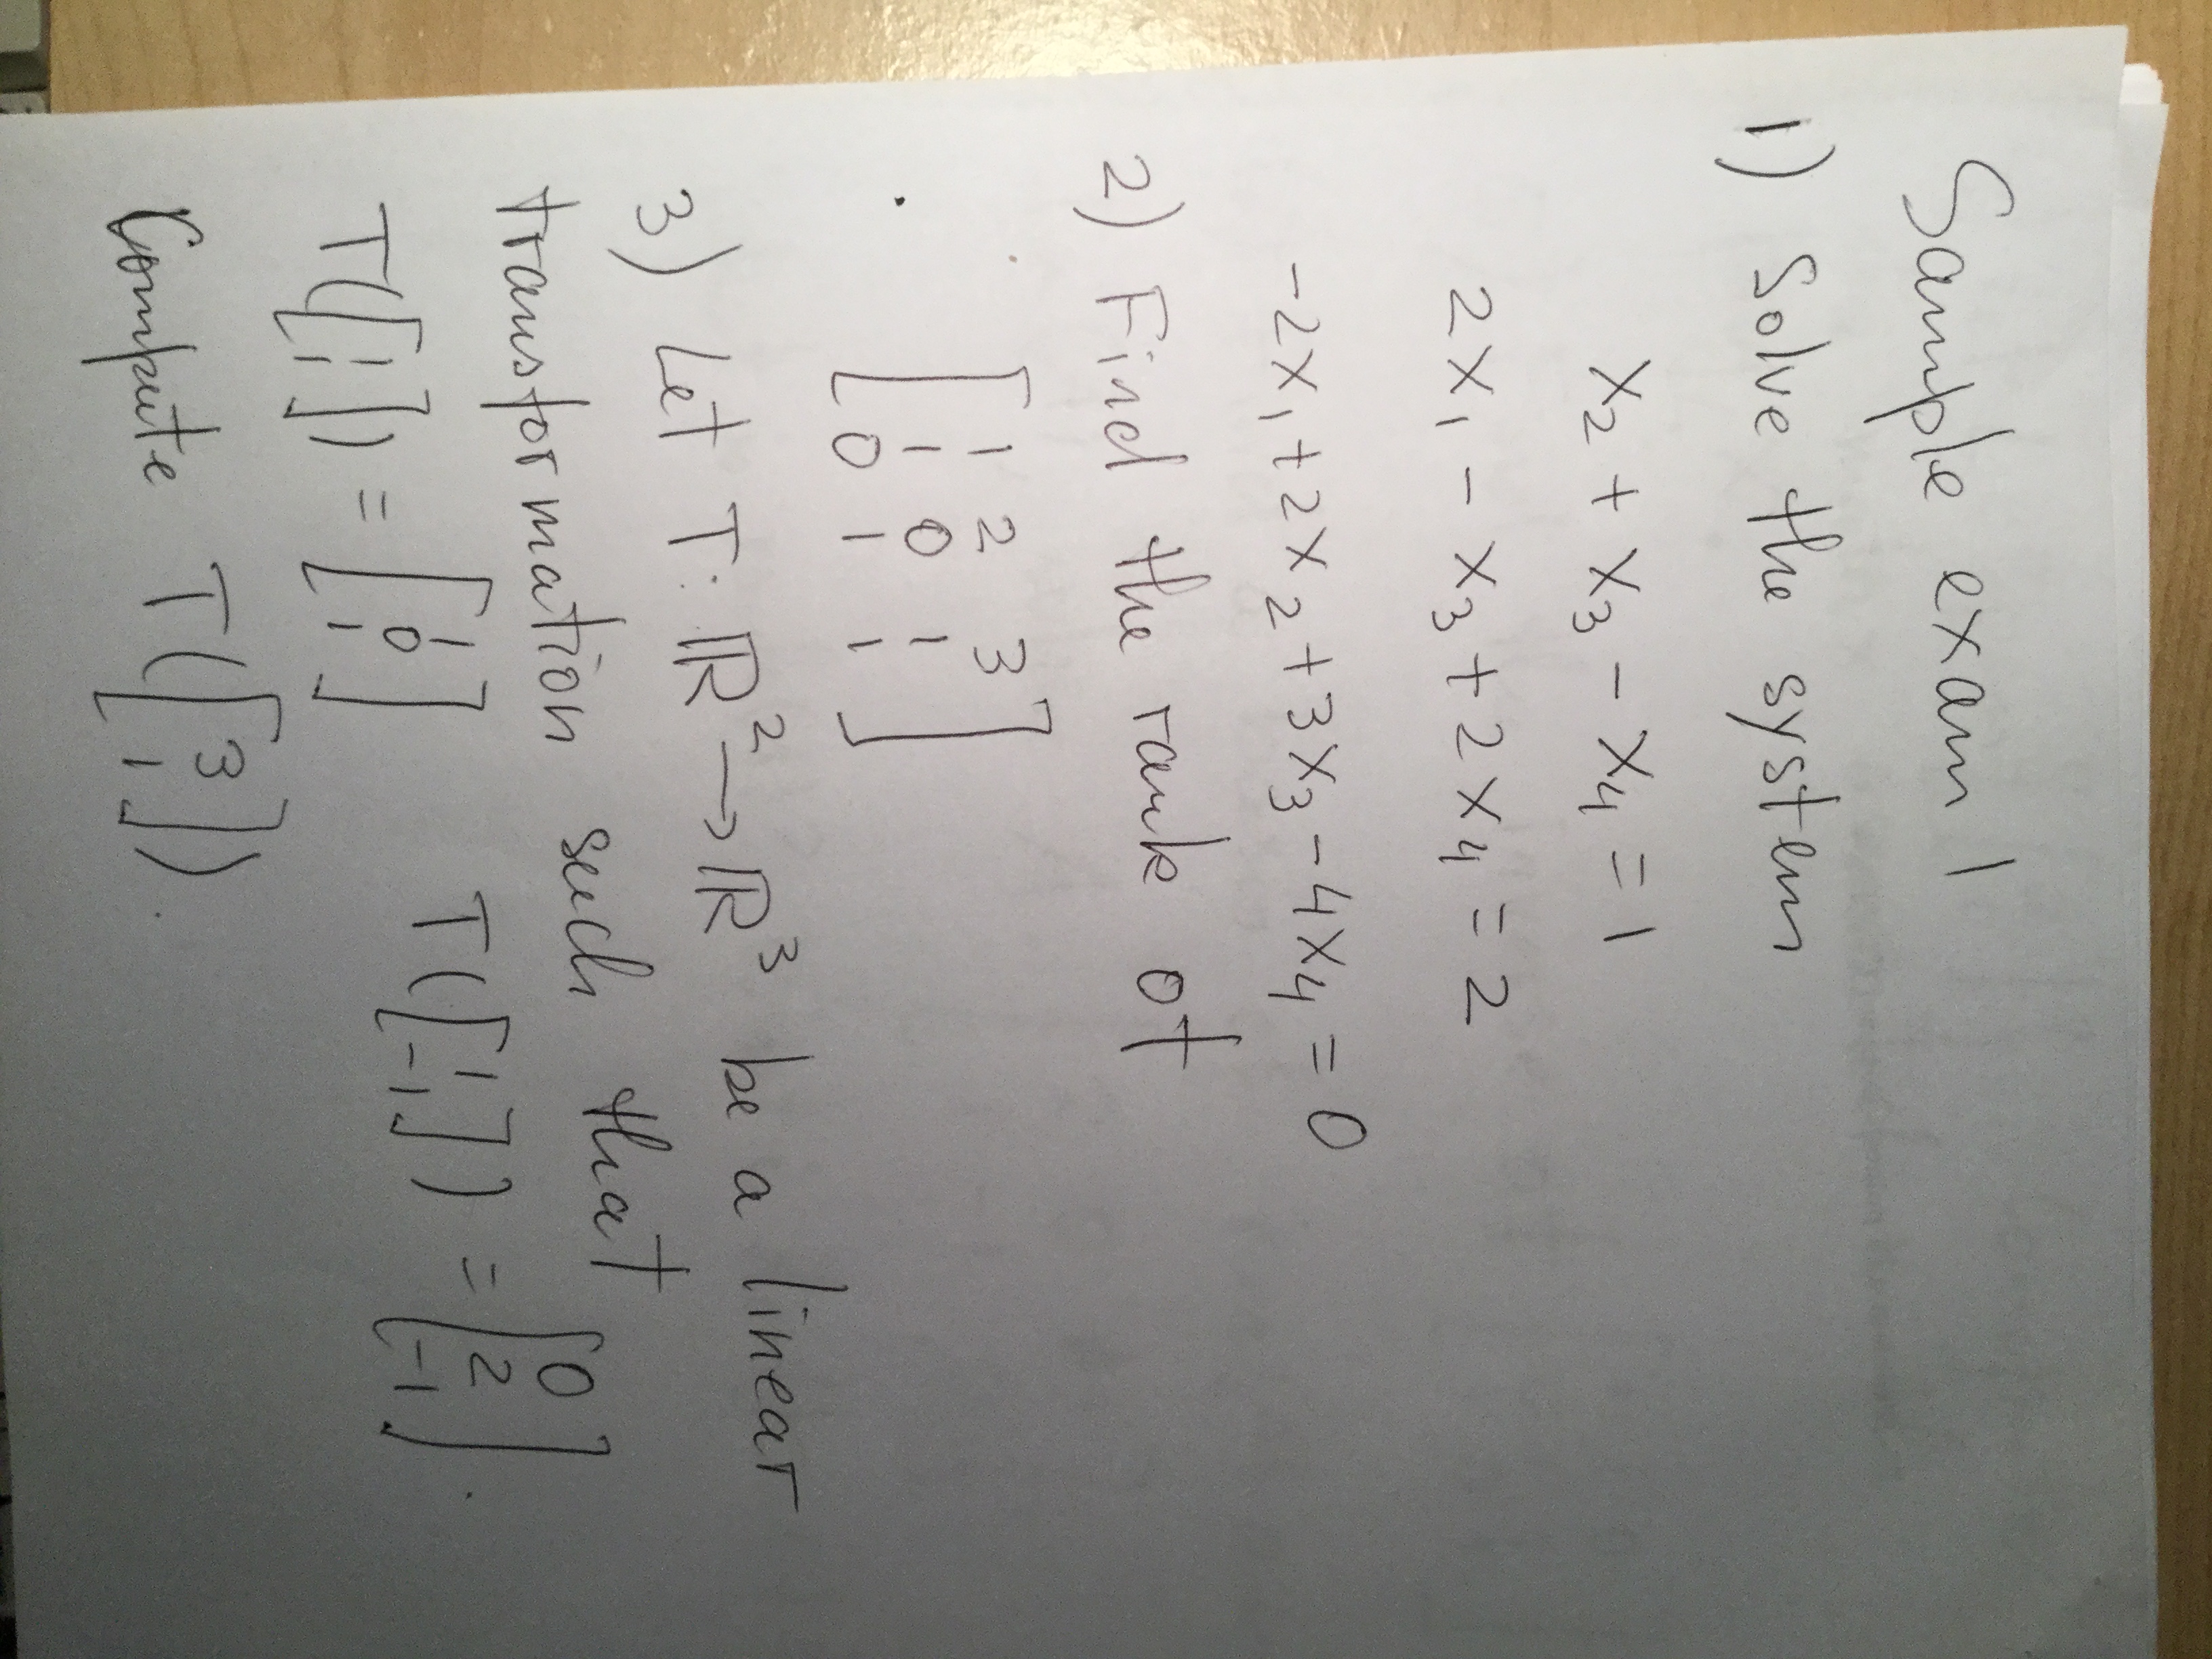 Sample exam 1
1) Solve the system
x₂ + x₃ - x₄ = 1
2x₁ - x₃ + 2x₄ = 2
-2x₁ + 2x₂ + 3x₃ - 4x₄ = 0
2) Find the rank of
[1 2 3
1 0 1
0 1 1]
3) Let T: ℝ² → ℝ³ be a linear
transformation such that
T([1 1]) = [1 0 1] T([1 -1]) = [0 2 -1].
Compute T([3 1]).